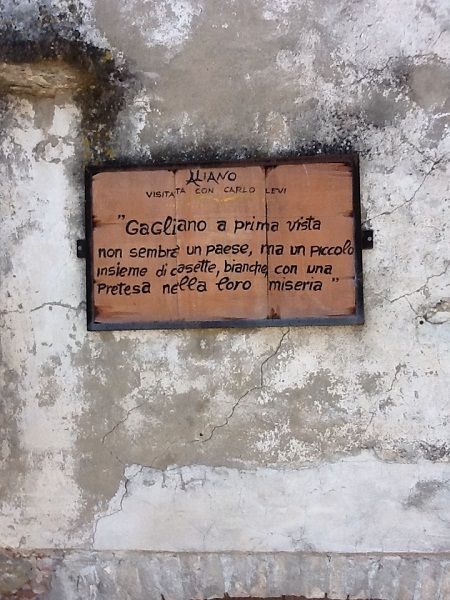 ALIANO
VISITATA CON CARLO LEVI
"Gagliano a prima vista
non sembra un paese, ma un piccolo
insieme di casette, bianche, con una
pretesa nella loro miseria"